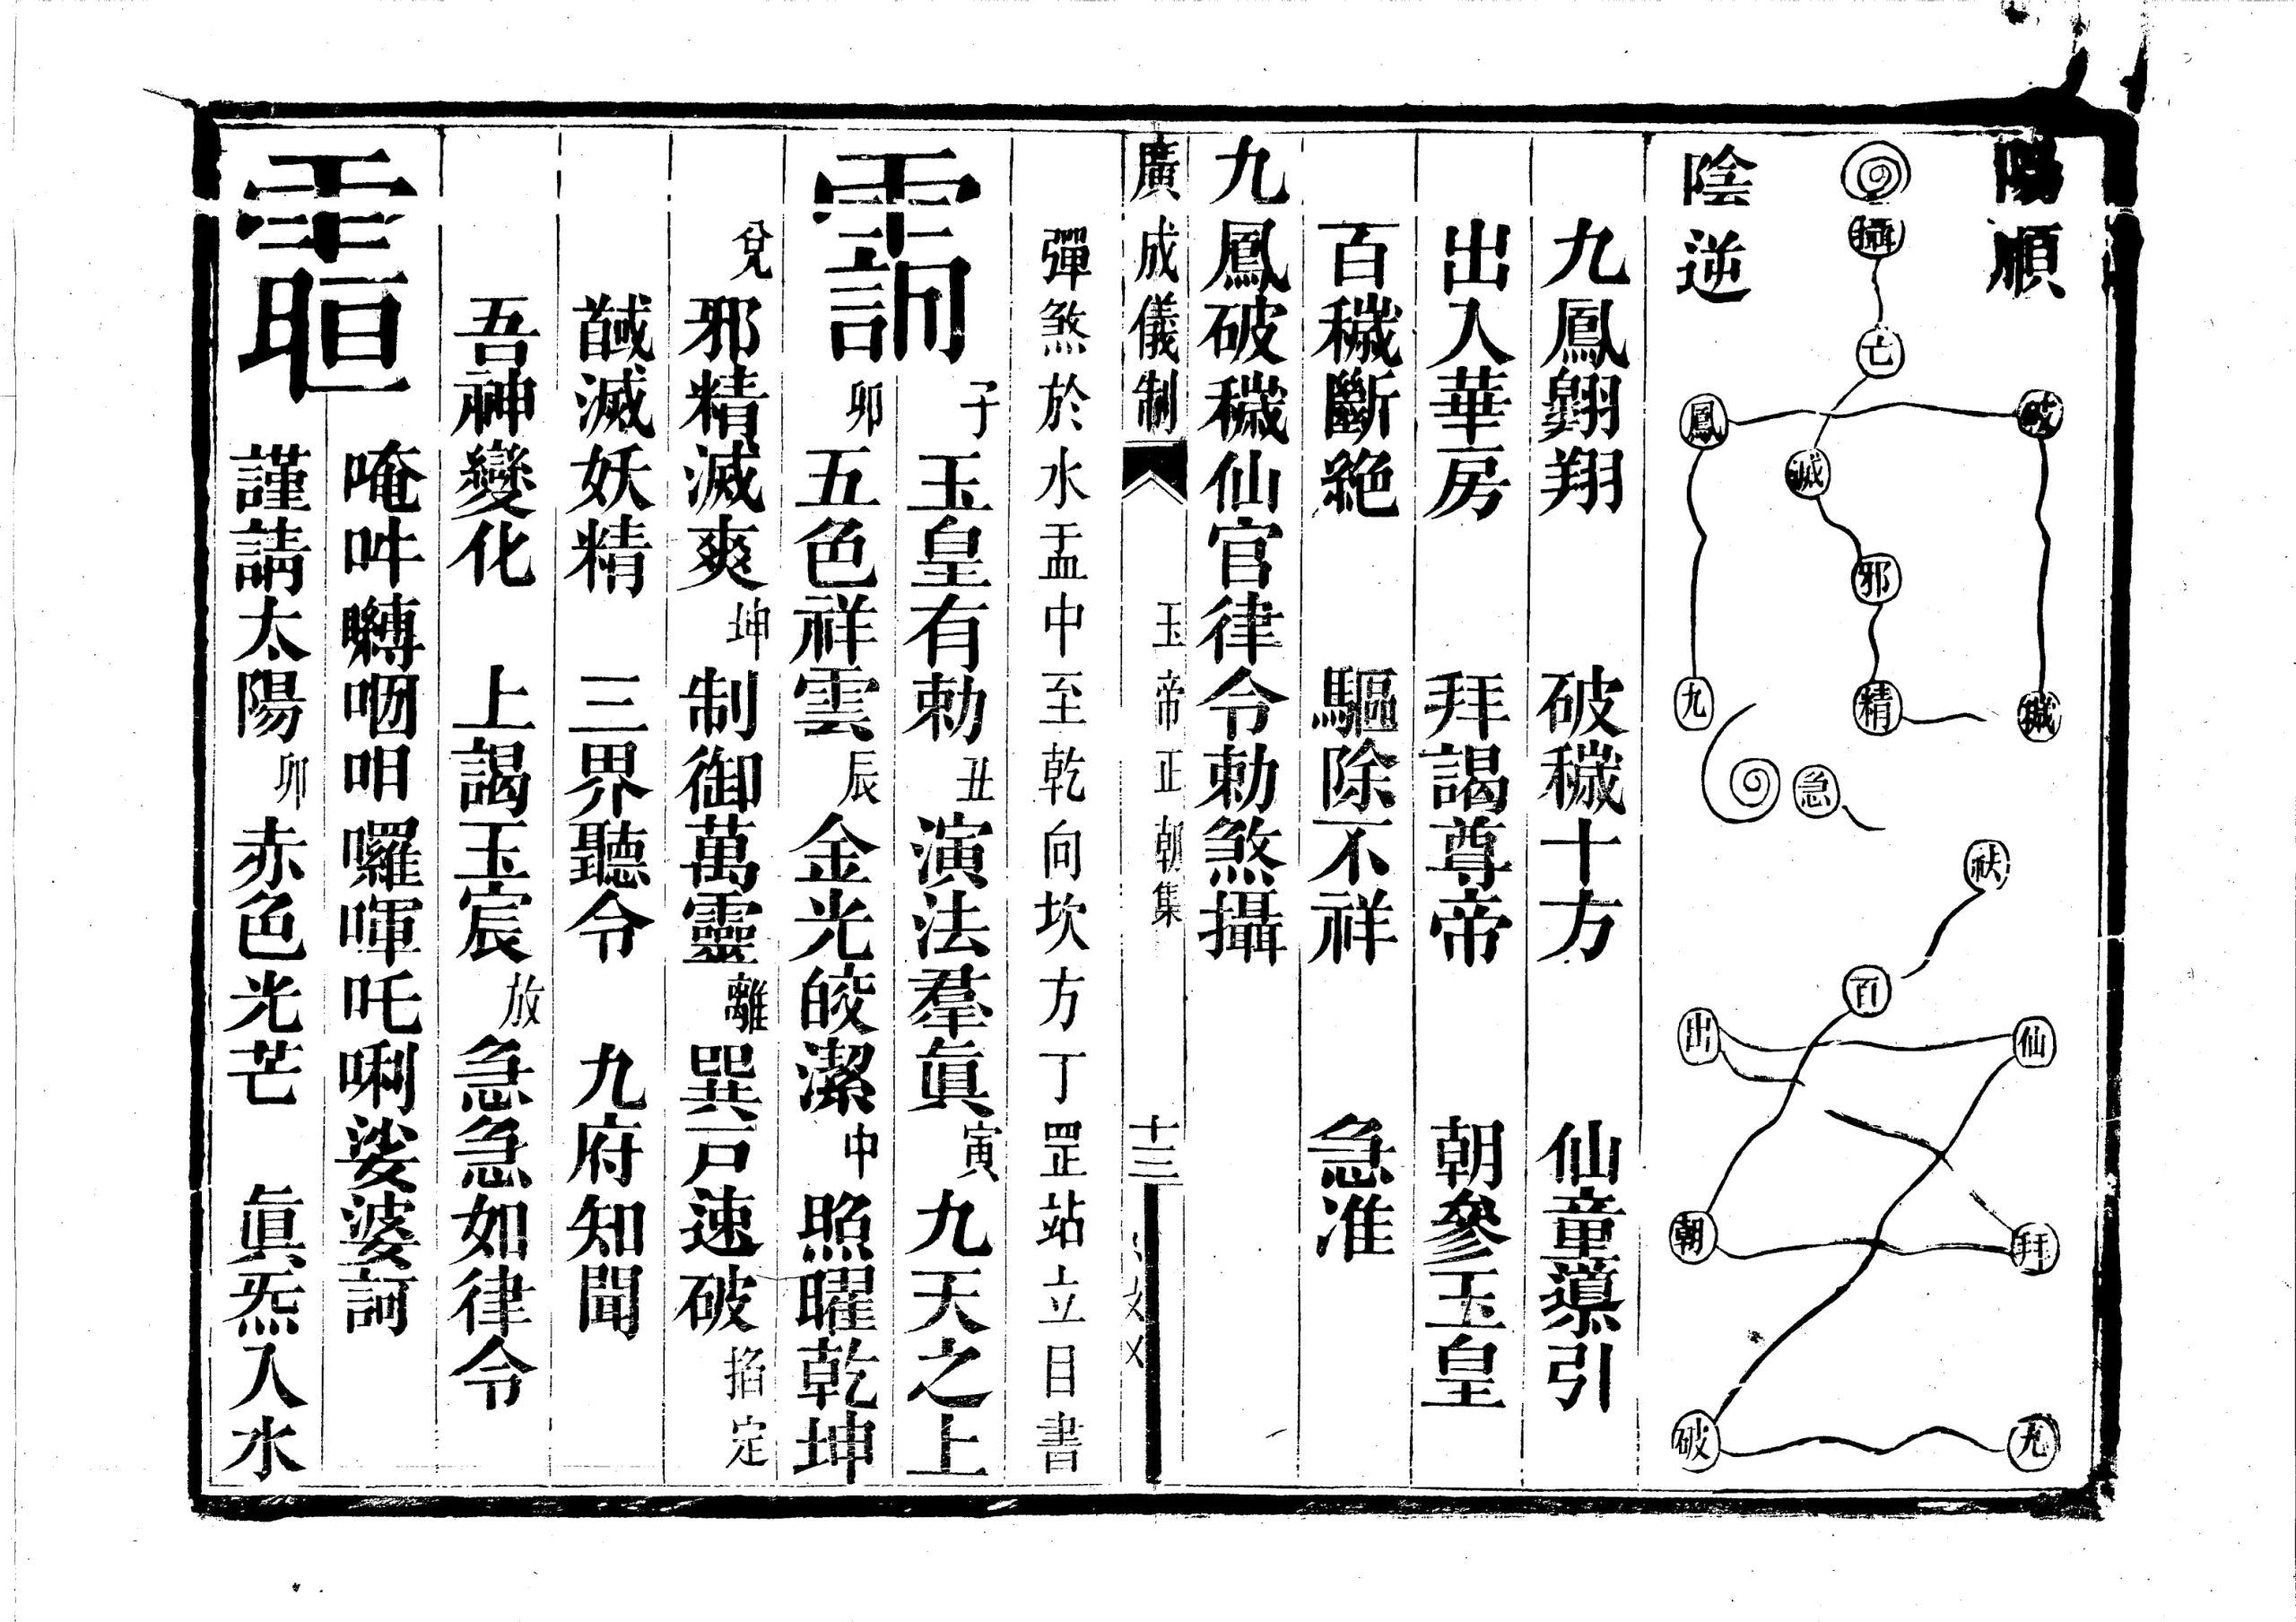 陽順
陰逆
攝
亡
破
鳳
滅
邪
穢
精
九
急
祛
百
仙
出
拜
朝
九
破
九鳳翺翔　破穢十方　仙童導引
出入華房　拜謁尊帝　朝參玉皇
百穢斷絶　驅除不祥　急准
九鳳破穢仙官律令勅煞攝
廣成儀制　玉帝正朝集　十三
彈煞於水盂中至乾向坎方丁罡站立目書
子玉皇有勅丑演法羣眞寅九天之上
卯五色祥雲辰金光皎潔中照曜乾坤
兌邪精滅爽坤制御萬靈離巽戸速破掐定
馘滅妖精　三界聽令　九府知聞
吾神變化　上謁玉宸放急急如律令
唵吽囀咽呾囉㖶吒唎娑婆訶
謹請太陽卯赤色光芒　眞炁入水